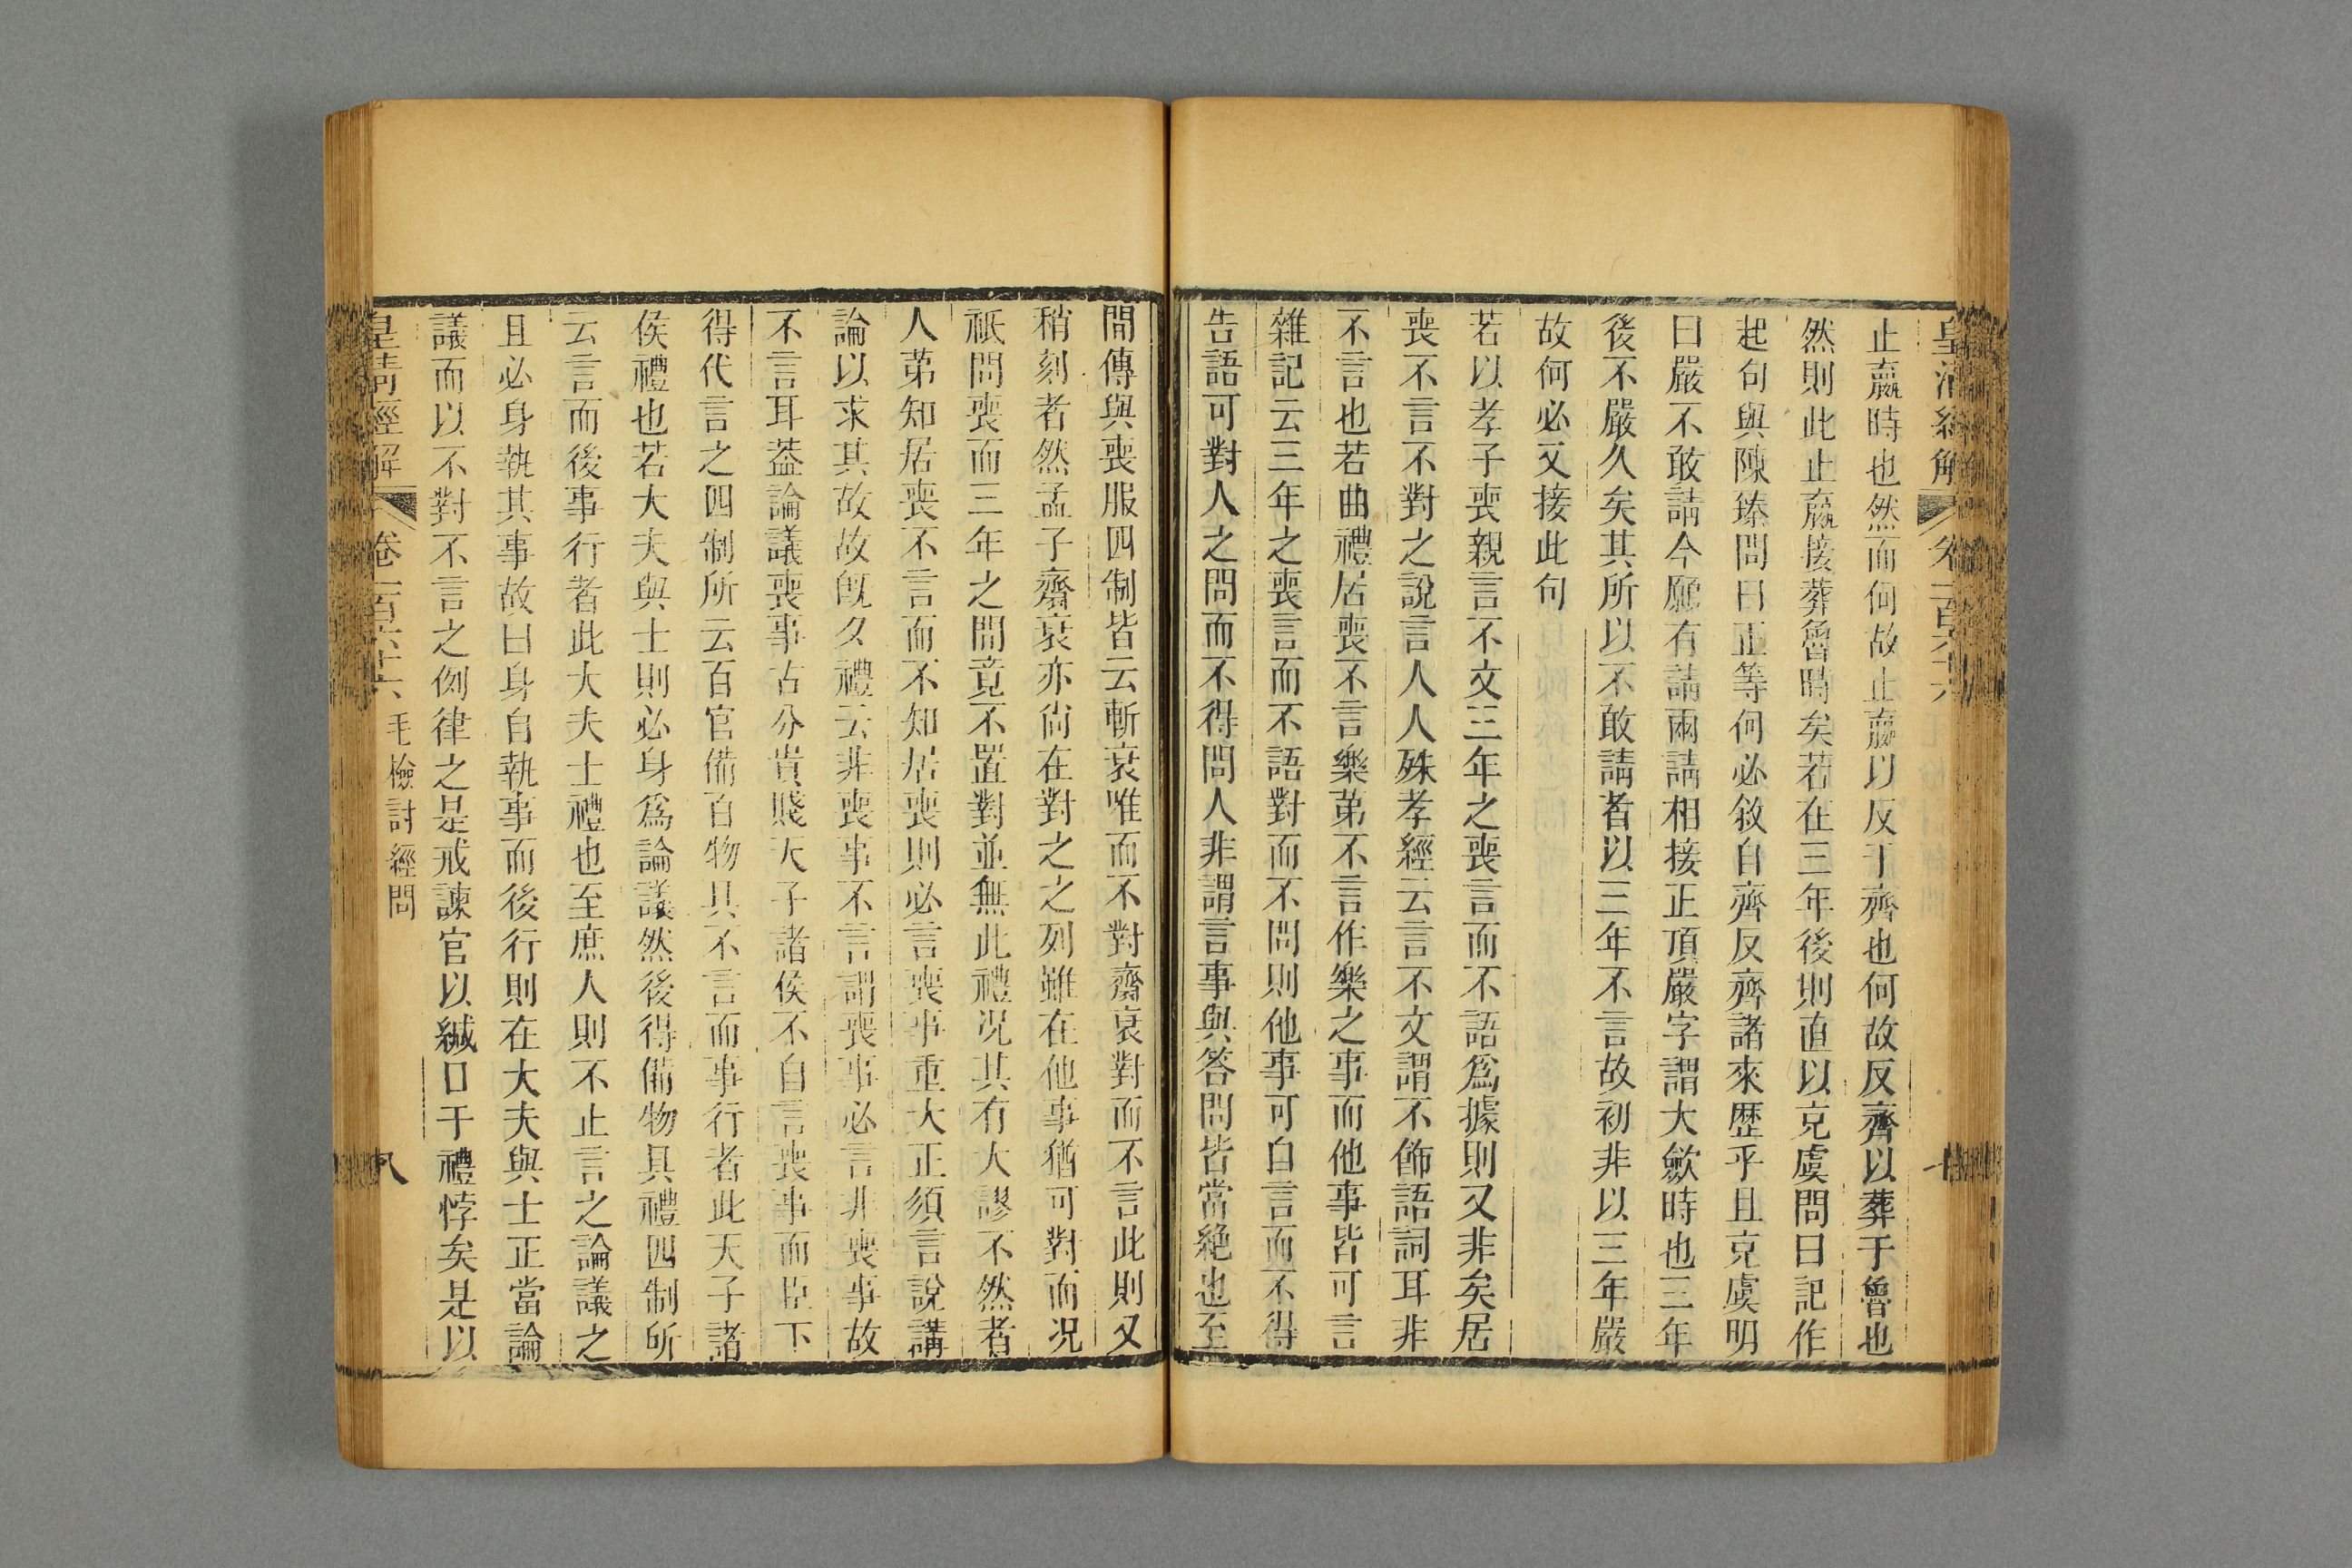 止嬴時也然而何故止嬴以反于齊也何故反齊以葬于魯也
然則此止嬴接葬魯時矣若在三年後則直以克虞問曰記作
起句與陳臻問曰正等何必敘自齊反齊諸來歷乎且克虞明
曰嚴不敢請今願有請兩請相接正頂嚴字謂大斂時也三年
後不嚴久矣其所以不敢請者以三年不言故初非以三年嚴
故何必又接此句
若以孝子喪親言不文三年之喪言而不語爲據則又非矣居
喪不言不對之說言人人殊孝經云言不文謂不飾語詞耳非
不言也若曲禮居喪不言樂苐不言作樂之事而他事皆可言
雜記云三年之喪言而不語對而不問則他事可自言而不得
告語可對人之問而不得問人非謂言事與答問皆當絶也至
間傳與喪服四制皆云斬衰唯而不對齋衰對而不言此則又
稍刻者然孟子齋衰亦尙在對之之列雖在他事猶可對而况
祇問喪而三年之間竟不置對並無此禮况其有大謬不然者
人苐知居喪不言而不知居喪則必言喪事重大正須言說講
論以求其故故旣夕禮云非喪事不言謂喪事必言非喪事故
不言耳葢論議喪事古分貴賤天子諸侯不自言喪事而臣下
得代言之四制所云百官備百物具不言而事行者此天子諸
侯禮也若大夫與士則必身爲論議然後得備物具禮四制所
云言而後事行者此大夫士禮也至庶人則不止言之論議之
且必身執其事故曰身自執事而後行則在大夫與士正當論
議而以不對不言之例律之是戒諫官以緘口于禮悖矣是以
皇淸經解 卷一百六十六 毛檢討經問 八